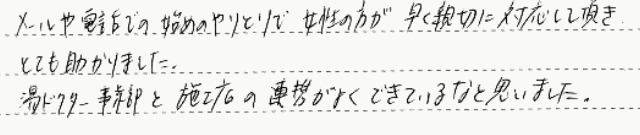 メールや電話での始めのやりとりで女性の方が早く親切に対応して頂き
とても助かりました。
湯ドクター事務部と施工店の連携がよくできているなと思いました。